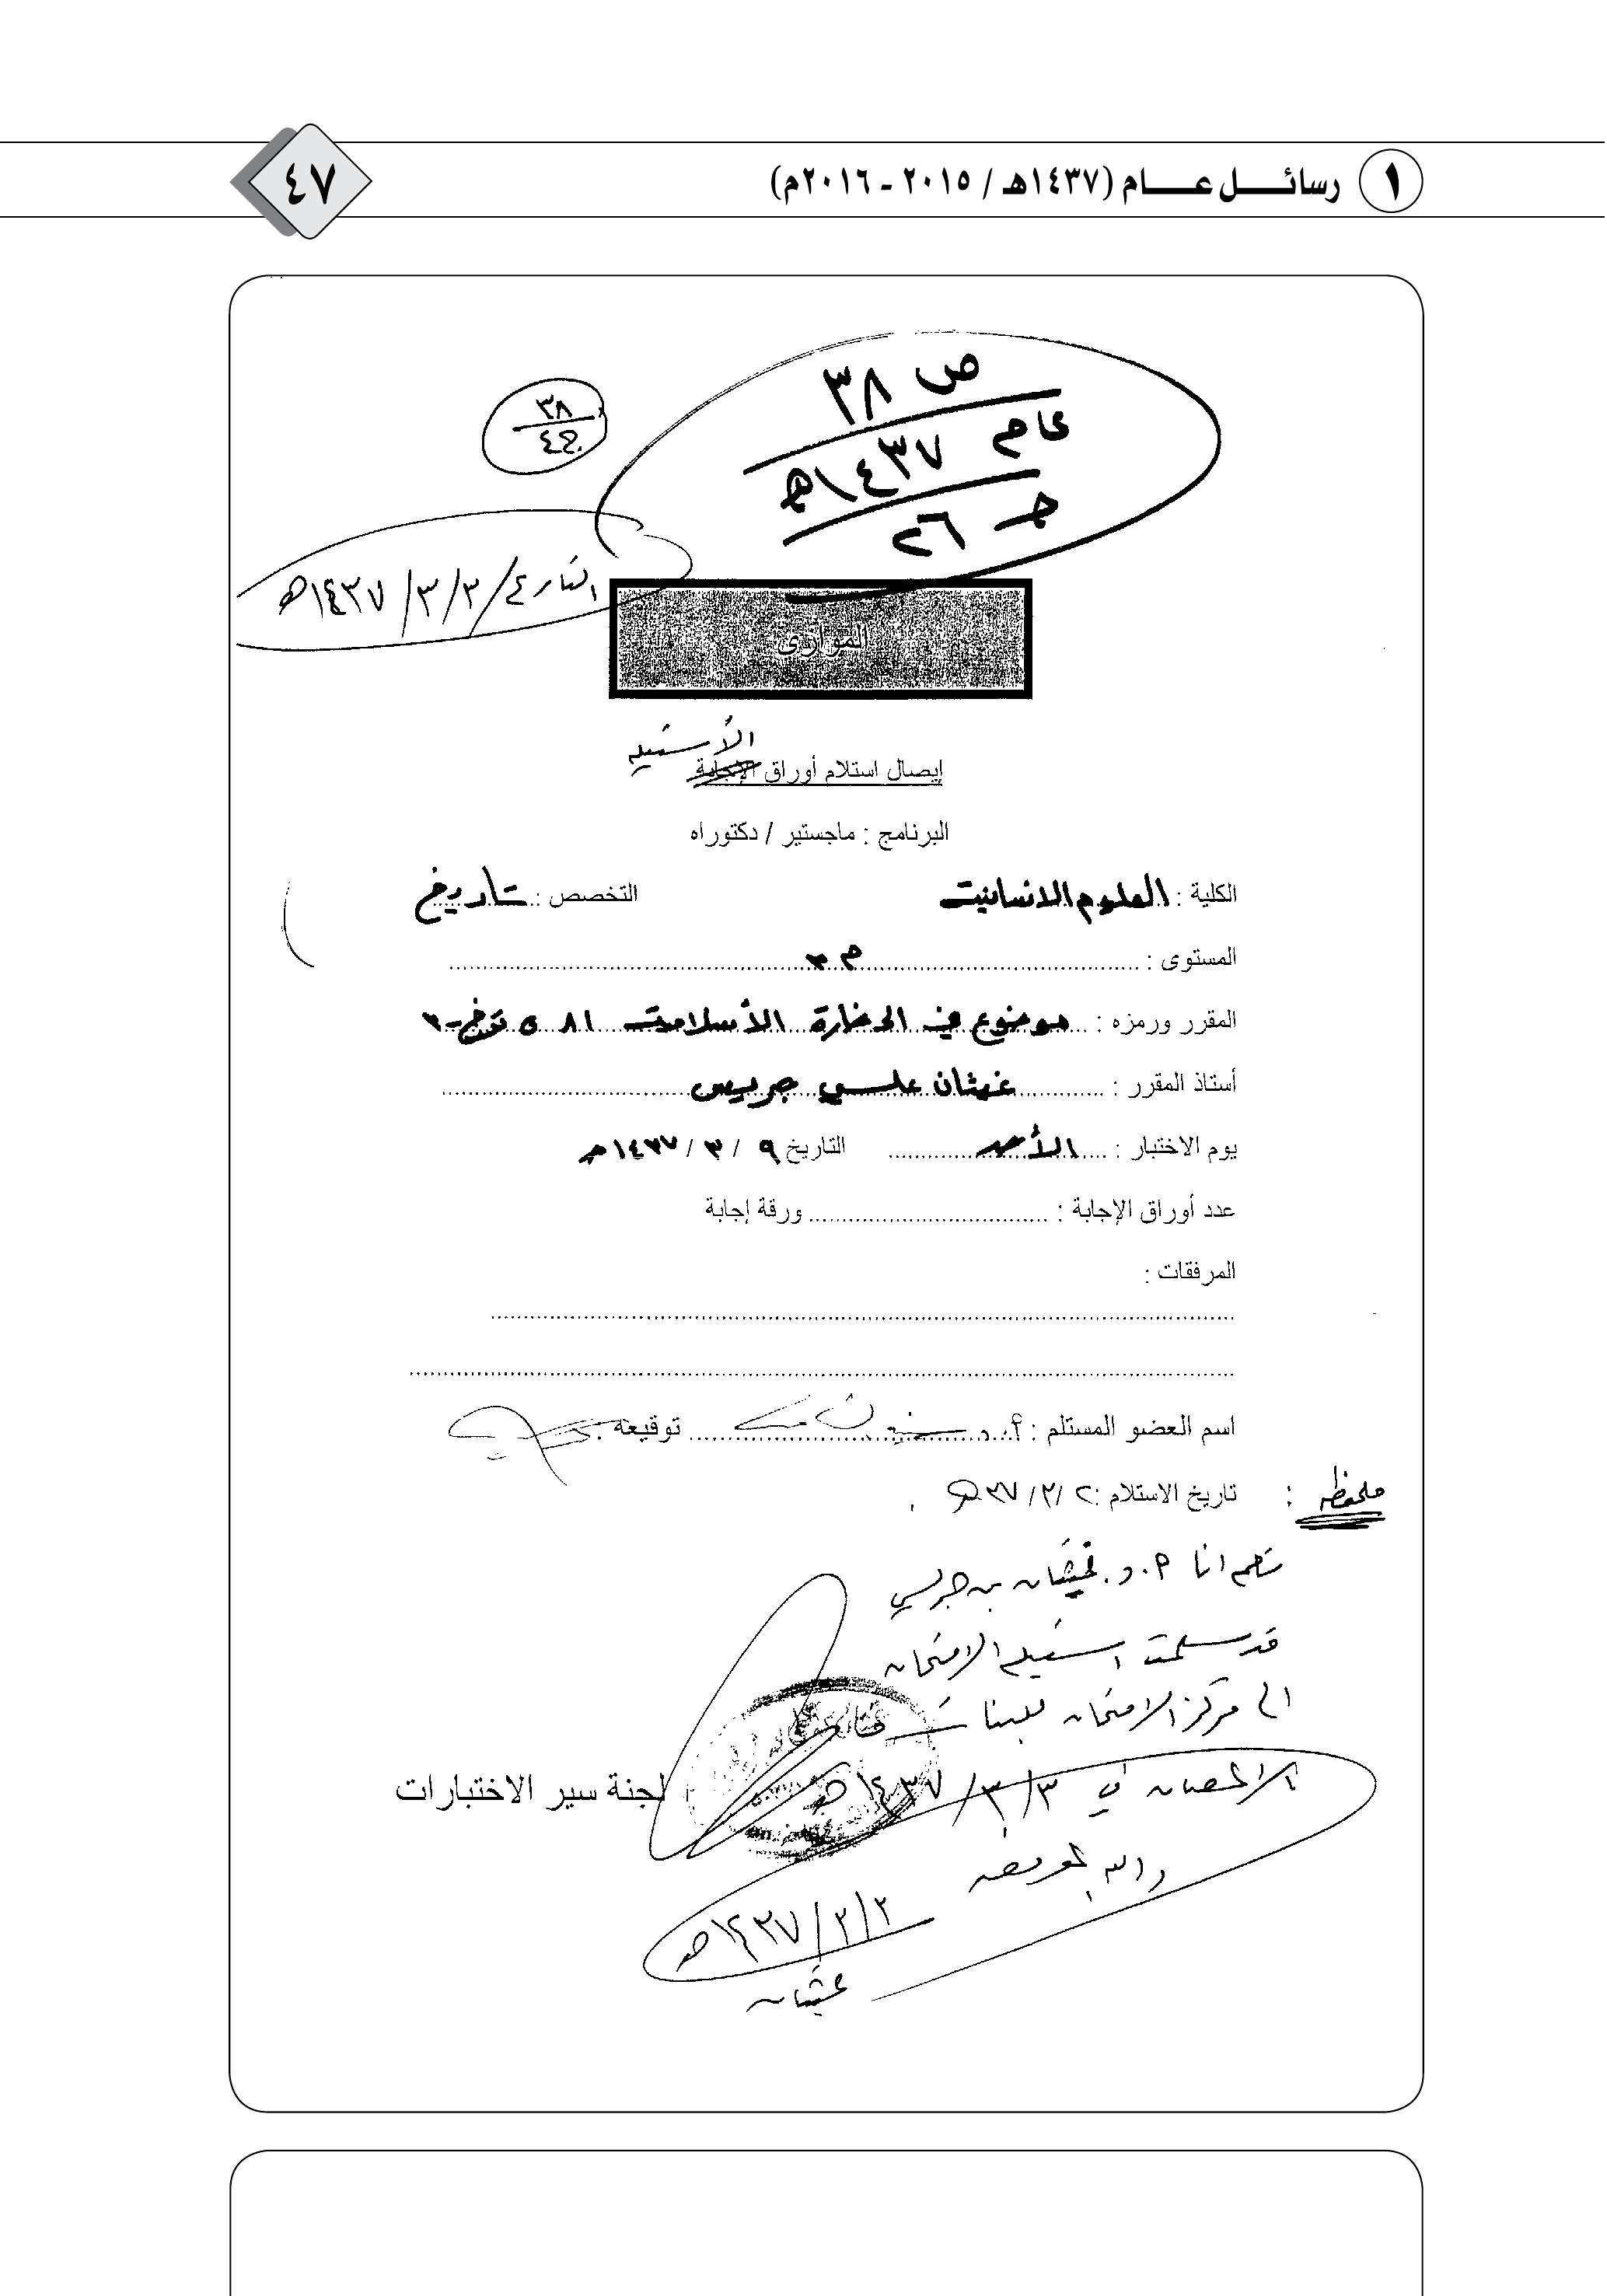 ١ رسائل عام (١٤٣٧هـ / ٢٠١٥ - ٢٠١٦م)
٤٧
ص ٣٨
عام ١٤٣٧هـ
جـ ٢٦
٣٨
٣/٣/١٤٣٧هـ
الموازي
الأسئلة
إيصال استلام أوراق الإجابة
البرنامج : ماجستير / دكتوراه
الكلية : العلوم الانسانية التخصص : تاريخ
المستوى : م ٣
المقرر ورمزه : موضوع في الحضارة الأسلامية ٥٨١ ترخ-٣
أستاذ المقرر : غيثان علي جريس
يوم الاختبار : الأحد التاريخ ٩ / ٣ / ١٤٣٧هـ
عدد أوراق الإجابة : ورقة إجابة
المرفقات :
اسم العضو المستلم : أ.د. توقيعه :
ملحوظة :
تاريخ الاستلام : ٢/٣/٣٧هـ
نعم انا أ.د. غيثان بن جريس
قد سلمت اسئلة الامتحان
الى مركز الامتحان للبنات
في ٣/٣/١٤٣٧هـ
لجنة سير الاختبارات
والله
١٤٣٧هـ
غيثان